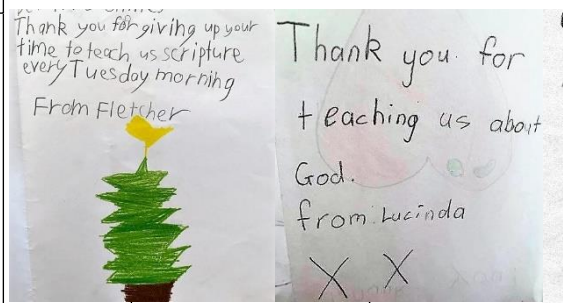 Thank you for giving up your
time to teach us scripture
every Tuesday morning
From Fletcher
Thank you for
teaching us about
God.
from Lucinda
X X